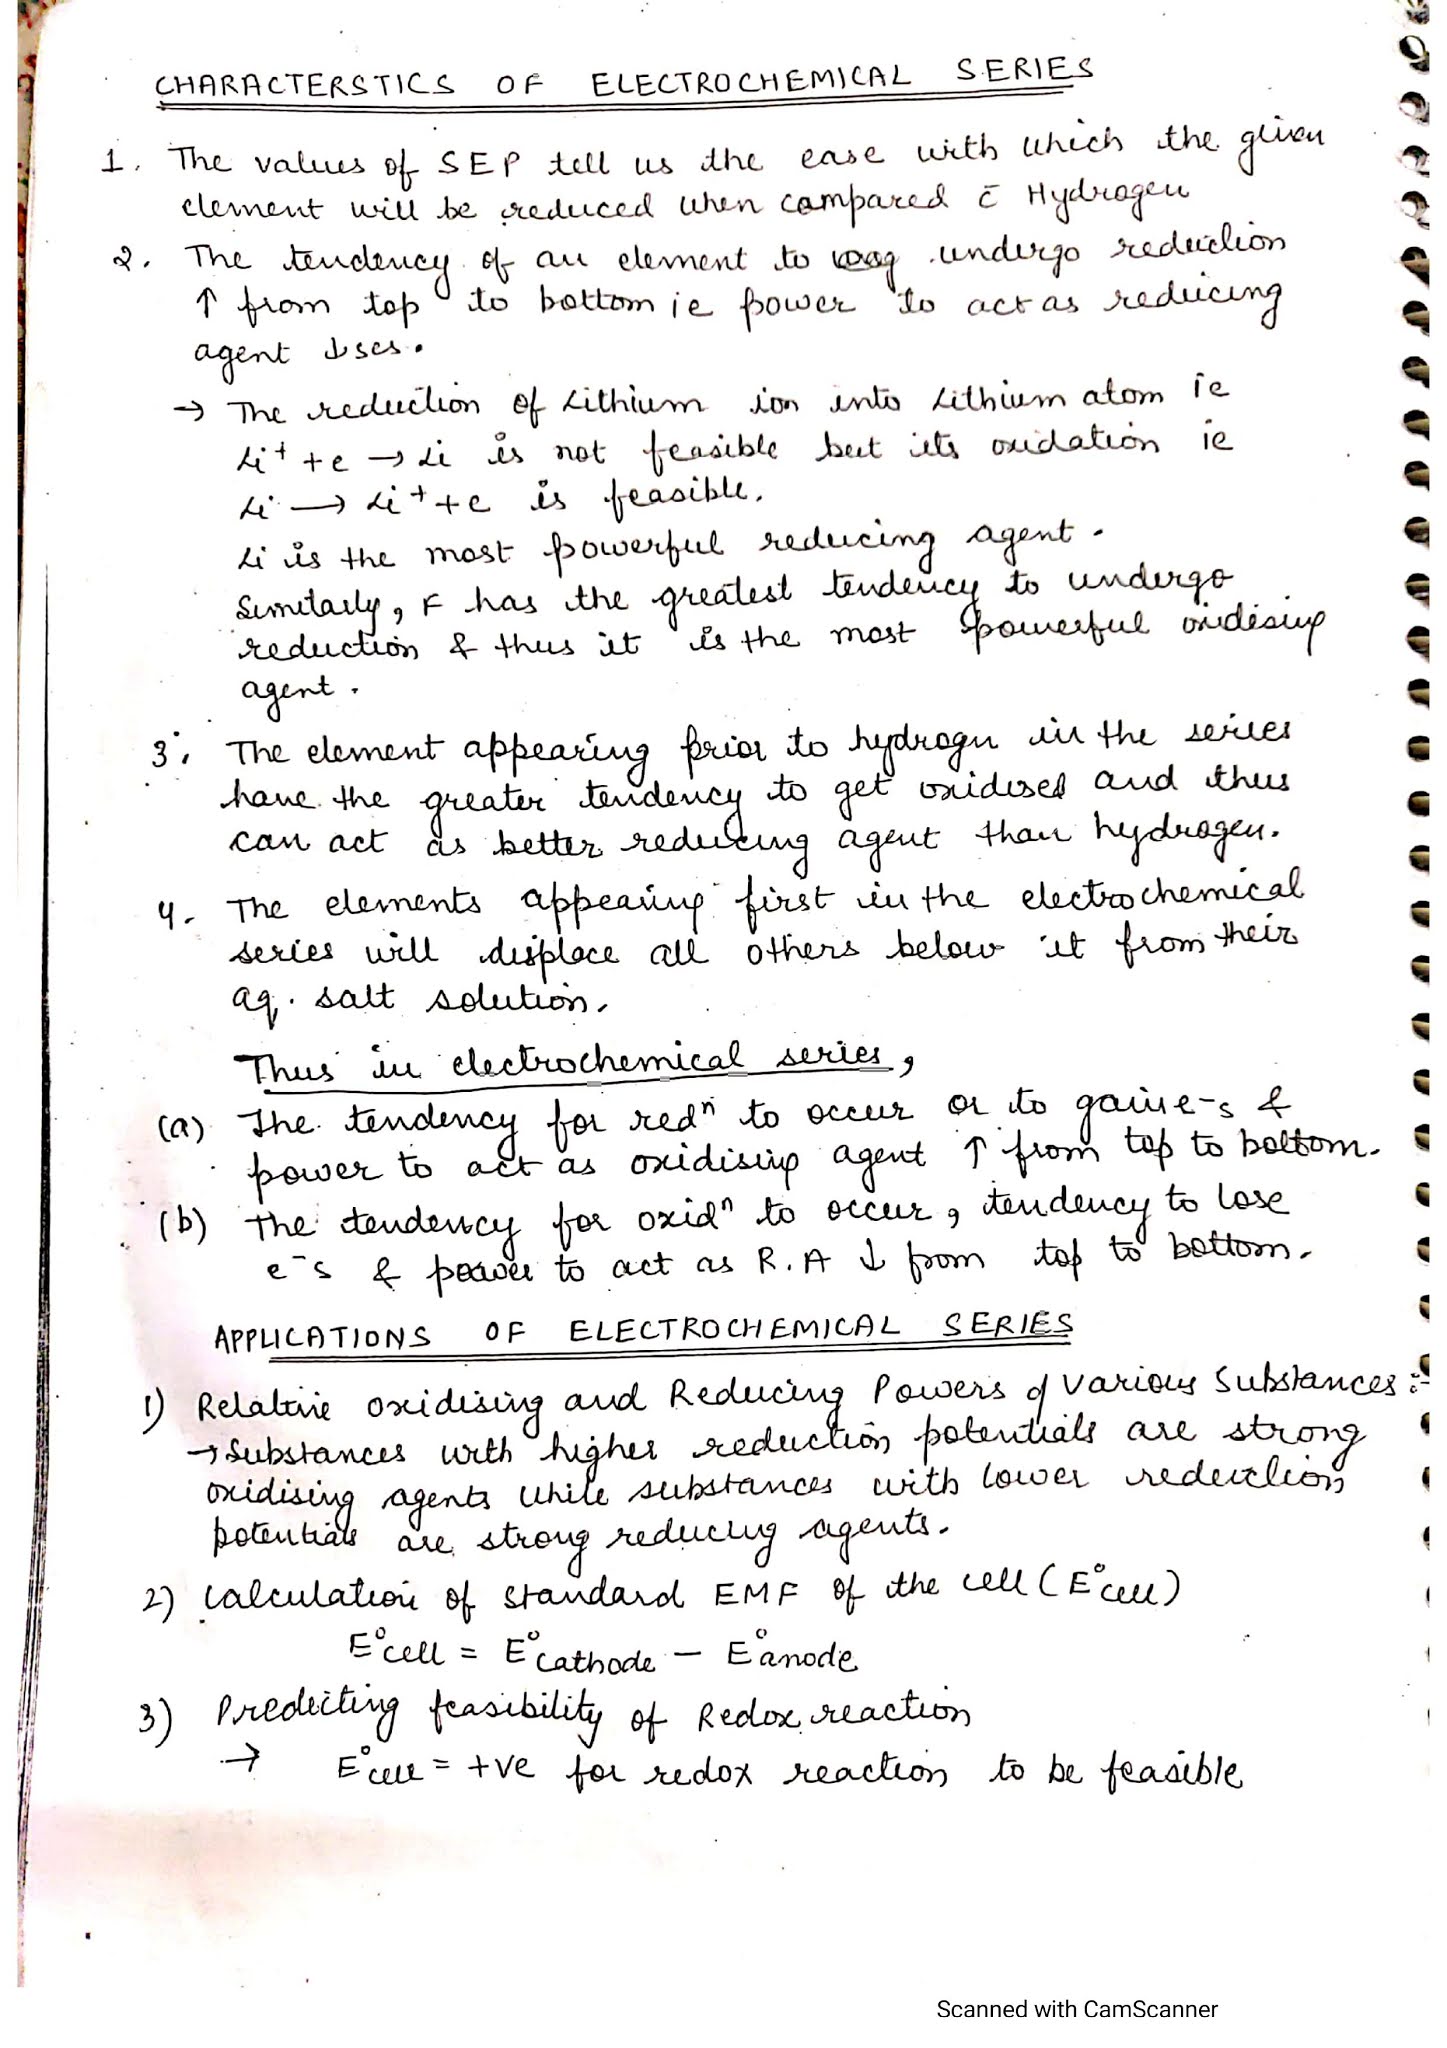 CHARACTERSTICS OF ELECTROCHEMICAL SERIES
1. The values of SEP tell us the ease with which the given
element will be reduced when compared c̄ Hydrogen
2. The tendency of an element to undergo reduction
↑ from top to bottom ie power to act as reducing
agent ↓ses.
→ The reduction of Lithium ion into Lithium atom ie
Li⁺ + e → Li is not feasible but its oxidation ie
Li → Li⁺ + e is feasible.
Li is the most powerful reducing agent.
Similarly, F has the greatest tendency to undergo
reduction & thus it is the most powerful oxidising
agent.
3. The element appearing prior to hydrogen in the series
have the greater tendency to get oxidised and thus
can act as better reducing agent than hydrogen.
4. The elements appearing first in the electrochemical
series will displace all others below it from their
aq. salt solution.
Thus in electrochemical series,
(a) The tendency for redⁿ to occur or to gain e-s &
power to act as oxidising agent ↑ from top to bottom.
(b) The tendency for oxidⁿ to occur, tendency to lose
e⁻s & power to act as R.A ↓ from top to bottom.
APPLICATIONS OF ELECTROCHEMICAL SERIES
1) Relative oxidising and Reducing Powers of Various Substances :-
→ Substances with higher reduction potentials are strong
oxidising agents while substances with lower reduction
potentials are strong reducing agents.
2) Calculation of standard EMF of the cell (E°cell)
E°cell = E°cathode − E°anode
3) Predicting feasibility of Redox reaction
→ E°cell = +ve for redox reaction to be feasible
Scanned with CamScanner